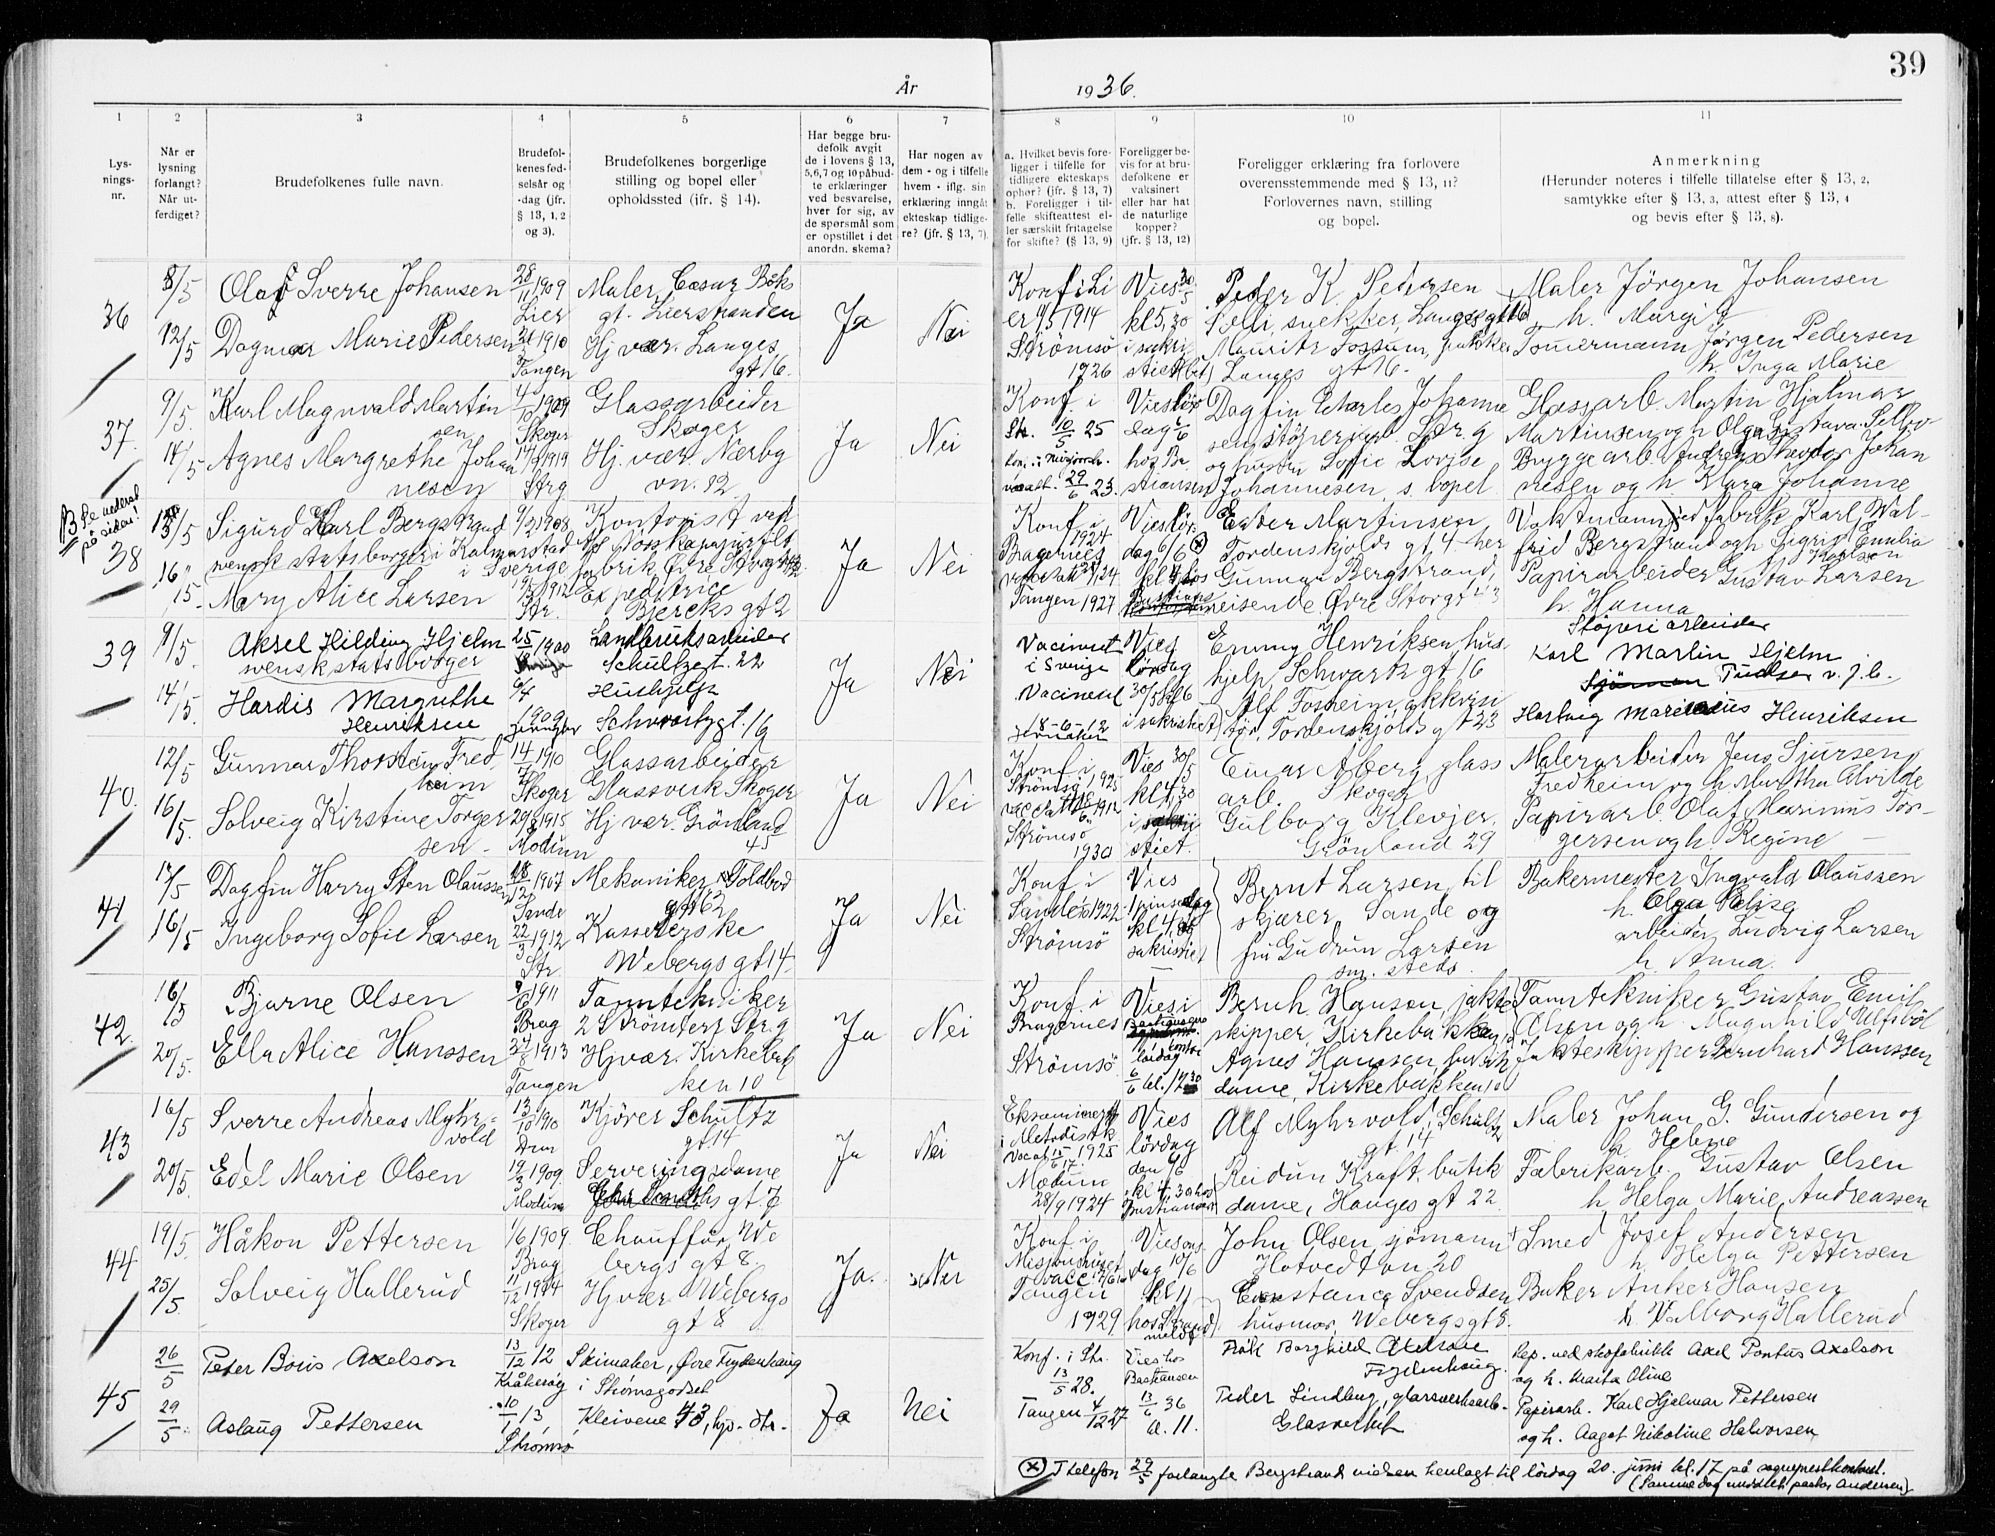 39
År 1936.
1 2 3 4 5 6 7 8 9 10 11
Lys-
nings-
nr.
Når er
lysning
forlangt?
Når ut-
ferdiget?
Brudefolkenes fulle navn.
Brudefol-
kenes fød-
selsår og
-dag (jfr.
§ 13, 1, 2
og 3).
Brudefolkenes borgerlige
stilling og bopel eller
opholdssted (jfr. § 14).
Har begge bru-
defolk avgit
de i lovens § 13,
5,6,7 og 10 påbud-
te erklæringer
ved besvarelse,
hver for sig, av
de spørsmål som
er opstillet i det
anordn. skema?
Har nogen av
dem - og i tilfelle
hvem - iflg. sin
erklæring inngåt
ekteskap tidlige-
re? (jfr. § 13, 7).
a. Hvilket bevis fore-
ligger i tilfelle for
tidligere ekteskaps
ophør? (jfr. § 13, 7)
b. Foreligger i til-
felle skifteattest el-
ler særskilt fritagelse
for skifte? (§ 13, 9)
Foreligger be-
vis for at bru-
defolkene er
vaksinert
eller har hat
de naturlige
kopper?
(jfr. § 13, 12)
Foreligger erklæring fra forlovere
overensstemmende med § 13, 11?
Forlovernes navn, stilling
og bopel.
Anmerkning
(Herunder noteres i tilfelle tillatelse efter § 13, 2,
samtykke efter § 13, 3, attest efter § 13, 4
og bevis efter § 13, 8).
36
8/5
12/5
Olaf Sverre Johansen
Dagmar Marie Pedersen
28/11 1909
Lier
1910
Tangen
Maler, Cæsar Böks
gt. Lierstranden
Hj vær. Langes
gt 16.
Ja
Nei
Konf i Li
er 1914
Strömsö
1926
Vies 30/5
kl 5,30
i sakri
stiet
Peder K. Pedersen
snekker, Langes gt 16
Maurits Fossum, snekker
Langes gt 16.
Maler Jörgen Johansen
h. Margit
Tömermann Jörgen Pedersen
h. Inga Marie
37.
9/5.
14/5
Karl Magnvald Martin
sen
Agnes Margrethe Johan
nesen
1909
Skoger
1919
Strg
Glassarbeider
Skoger
Hj. vær. Nærby
vn. 12
Ja
Nei
Konf. i
Sk. 10/5 25
29/6 23.
Vies lör
dag 6/6
hos Ba
stiansen
Dagfin Charles Johanne
sen
og hustru Sofie Lovise
Johannesen, s. bopel
Glassarb. Martin Hjalmar
Martinsen og h Olga Gustava
Bryggearb. Andreas Theodor Johan
nesen og h. Klara Johanne
B Se nederst
på siden!
38
13/5
16/5
15.
Sigurd Karl Bergstrand
svensk statsborger i Kalmarstad
i Sverige
Mary Alice Larsen
9/2 1908
1912
Str.
Kontorist ved
A/S Norsk papirfilt
fabrik Övre Storgt 43
Expeditrice
Bjercks gt 2
Ja
Nei
Konf i
1924
Bragernes
Tangen 1927
Vies lör
dag 6/6
kl 4 hos
Einar Martinsen
Tordenskjolds gt 4. her
Gunnar Bergstrand,
reisende Övre Storgt 43
Vaktmann ved fabrik Karl Wal-
frid Bergstrand og h Sigrid Emilia
Karlson
Papirarbeider Gustav Larsen
h. Hanna
39
9/5.
14/5.
Aksel Hilding Hjelm
svensk statsborger
Hardis Margrethe
Henriksen
1900
1909
Landbruksarbeider
Schultzgt. 22
Hushjelp
Schwartzgt. 16
Ja
Nei
Vacinert
i Sverige
Vacinert
18-6-12
Vies
lördag
30/5 kl 6
i sakristiet
Emmy Henriksen, hus
hjelp, Schwartz gt 16
Alf Fosheim, akkvisi
tör, Tordenskjolds gt 23
Stöperiarbeider
Karl Martin Hjelm
Hartvig Marinius Henriksen
40.
12/5
16/5.
Gunnar Thorstein Fred
heim
Solveig Kirstine Torger
sen
1910
Skoger
1915
Modum
Glassarbeider
Glassverk Skoger
Hj vær. Grönland
45
Ja
Nei
Konf i
Strömsö 1925
Strömsö
1930
Vies 30/5
kl 4,30
i
stiet.
Einar Aberg, glass
arb. Skoger
Gulborg Klevjer,
Grönland 29
Malerarbeider Jens Sjursen
Fredheim og h Martha Alvilde
Papirarb. Olaf Marinius Tor-
gersen og h. Regine
41
14/5
16/5
Dagfin Harry Sten Olaussen
Ingeborg Sofie Larsen
18/12 1907
Sande
22/3 1912
Str
Mekaniker Toldbod
gt 62
Kassererske
Webergs gt 14
Ja
Nei
Konf i
Sande 1922
Strömsö
Vies
1 pinsedag
sakristiet
Bernt Larsen, til
skjærer, Sande og
fru Gudrun Larsen
sm. steds.
Bakermester Ingvald Olaussen
h. Olga Elise
arbeider Ludvig Larsen
h. Anna.
42.
16/5
20/5.
Bjarne Olsen
Ella Alice Hanssen
1911
Brag
1913
Tangen
Tanntekniker
2 Strömters Str. g
Hj vær. Kirkebak
ken 10
Ja
Nei
Konf i
Bragernes
Strömsö
Vies i
kontor
lördag
6/6 kl. 17 30
Bernh. Hansen, jakte
skipper, Kirkebakken 10
Agnes Hanssen, butik
dame, Kirkebakken 10
Tanntekniker Gustav Emil
Olsen og h. Magnhild Ulfsböl
Jakteskipper Bernhard Hanssen
43
16/5
20/5.
Sverre Andreas Myhr-
vold
Edel Marie Olsen
13/10 1910
Drm
19/3 1909.
Modum
Kjörer Schultz
gt. 14
Serveringsdame
gt 7
Ja
Nei
i Metodistk
1925
Modum
28/9 1924
Vies
lördag
den 6/6
kl 4.30 hos
Bastiansen
Alf Myhrvold, Schultz
gt 14
Reidun Kraft, butik
dame, Hauges gt 22.
Maler Johan G. Gundersen og
h Helene
Fabrikarb. Gustav Olsen
h Helga Marie Andreassen
44
19/5.
25/5.
Håkon Pettersen
Solveig Hallerud
1/6 1909.
Brag
11/12 1914
Skoger
Chauffør, We
bergs gt 8.
Hj vær Webergs
gt 8
Ja.
Nei
Konf i
Misjonshuset
Tangen
1929
Vies ons
dag 10/6
kl 11
hos
John Olsen sjömann
Hotvedtvn 20
Constance Svendsen
husmor, Webergsgt 8.
Smed Josef Andersen
h. Helga Pettersen
Baker Anker Hansen
h Valborg Hallerud
45
26/5
29/5
Peter Boris Axelson
Aslaug Pettersen
13/12 12
Kråkerøy
10/1 13,
Strømsø
Skimaker, Øvre Frydenhaug
i Strømsgodset
Kleivene 43, hjp. Str.
Ja
Nei
Konf. i Str.
13/5 28.
Tangen 4/12 27
Vies hos
Bastiansen
13/6 36
kl. 11.
Frøk Borghild Axelson
Frydenhaug.
Peder Lindberg, glassverksarb.
Glassverket
Rep. ved skofabrikk Axel Pontus Axelson
og h. Marta Oline
Papirarb. Karl Hjalmar Pettersen
og h. Aagot Nikoline Halvorsen
(x) I telefon 29/5 forlangte Bergstrand vielsen henlagt til lördag 20. juni kl. 17 på sogneprestkontoret.
(Samme dag meddelt pastor Andersen)